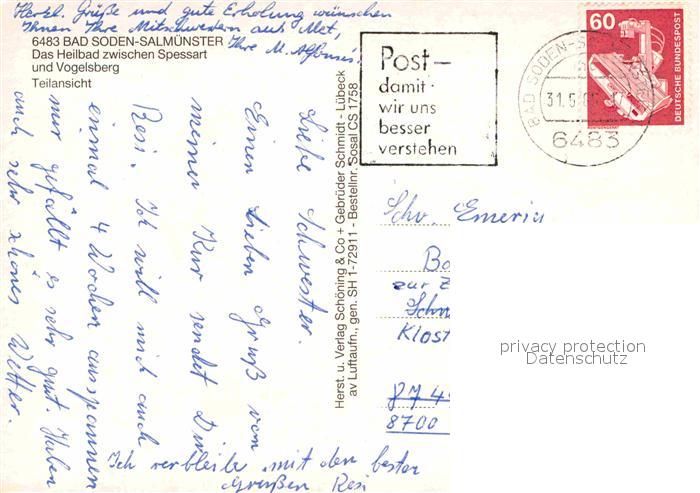 Herzl. Grüße und gute Erholung wünschen
Ihnen Ihre Mitschwestern aus Met,
Ihre M.
6483 BAD SODEN-SALMÜNSTER
Das Heilbad zwischen Spessart
und Vogelsberg
Teilansicht
Liebe Schwester.
Einen lieben Gruß vom
meiner Kur sendet Dir
Resi. Ich will mich auch
einmal 4 Wochen ausspannen
mir gefällt es sehr gut. Haben
auch sehr schönes Wetter.
Ich verbleibe mit den besten
Grüßen Resi
Herst. u. Verlag Schöning & Co + Gebrüder Schmidt - Lübeck
av Luftaufn., gen. SH 1-72911 - Bestellnr. Sosal CS 1758
Post-
damit
wir uns
besser
verstehen
BAD SODEN-S
31.5.8
6483
60
DEUTSCHE BUNDESPOST
Schw. Emeria
Bo
zur E
Schw
Klost
8700
privacy protection
Datenschutz